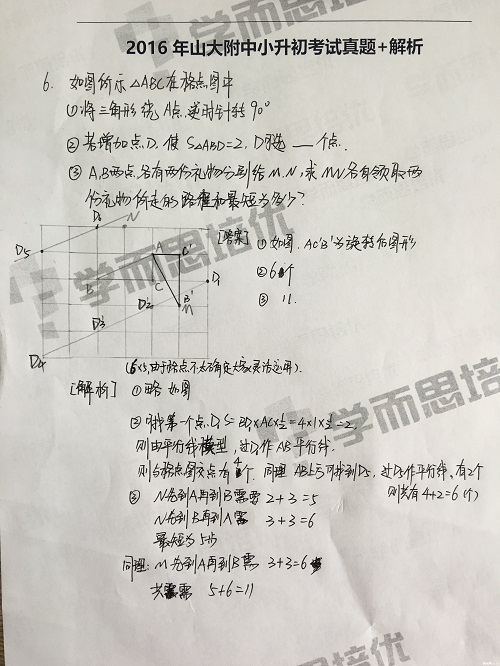 学而思培优
2016年山大附中小升初考试真题+解析
6. 如图所示△ABC在格点图中
①将三角形绕A点逆时针转90°
②若增加点D,使S△ABD=2,D可选___个点.
③A,B两点各有两份礼物分别给M,N,求MN各自领取两
份礼物所走的路程和最短为多少?
D6 N
D5 A C' D1
B C
D2 B'
D3 M
D4
[答案] ①如图,AC'B'为旋转后图形
②6个
③11.
(6×5,由于格点不太确定大家灵活运用).
[解析] ①略 如图
②找第一个点D,S=BD×AC×½=4×1×½=2,
则由平行线模型,过D作AB平行线.
则与格点图交点有4个.同理AB上方可找到D5,过D5作平行线,有2个
则共有4+2=6(个)
③ N先到A再到B需要 2+3=5
N先到B再到A需 3+3=6
最短为5步
同理:M先到A再到B需 3+3=6步
共需 5+6=11
学而思培优
学而思培优